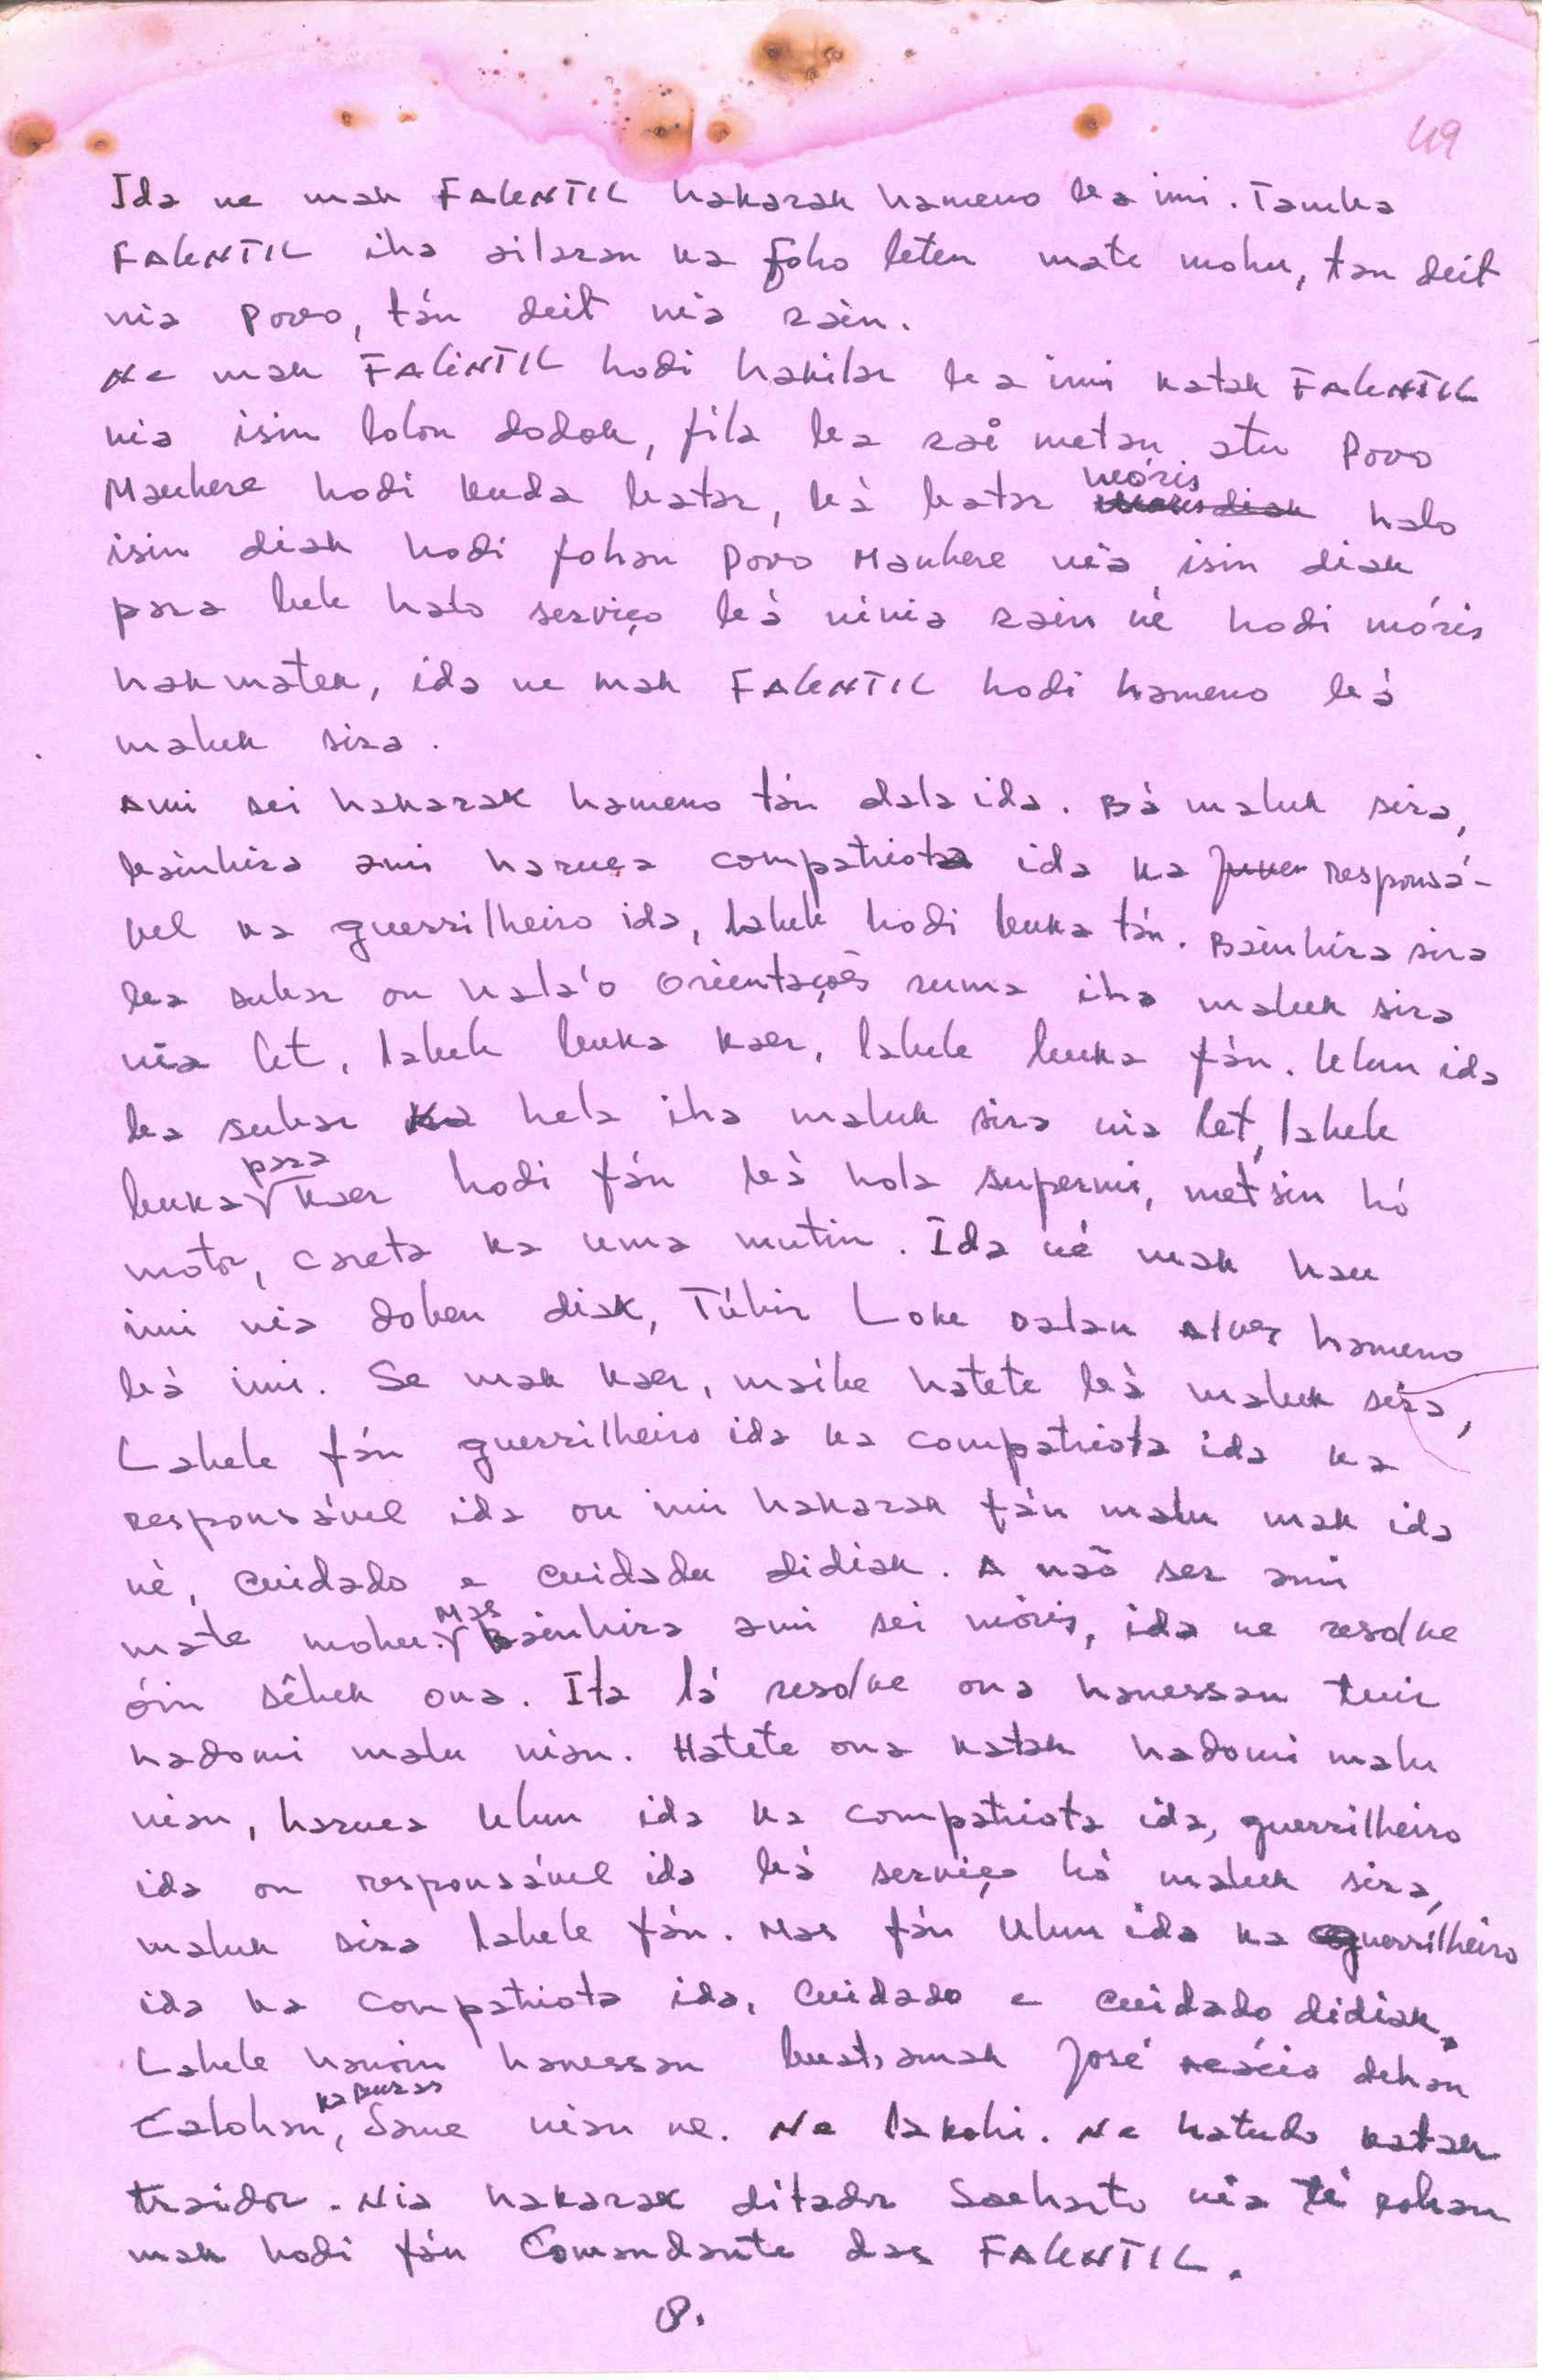 49
Ida ne mak FALENTIL hakarak hameno ba imi. Tamba
FALENTIL iha ailaran ka foho leten mate mohu, tan deit
nia Povo, tán deit nia rain.
Ne mak FALINTIL hodi hakilar ba imi katak FALENTIL
nia isin lolon dodok, fila ba rai metan atu Povo
Maubere hodi kuda batar, bá batar móris halo
isin diak hodi fohan Povo Maubere nia isin diak
para bele halo serviço bá ninia rain né hodi móris
hakmatek, ida ne mak FALENTIL hodi hameno bá
maluk sira.
Ami sei hakarak hameno tán dala ida. Bá maluk sira,
bainhira ami haruca compatriota ida ka responsá-
vel ka guerrilheiro ida, labele hodi buka tán. Bainhira sira
ba subar ou hala'o orientações ruma iha maluk sira
nia let, labele buka kaer, labele buka fán. Ulun ida
ba subar hela iha maluk sira nia let, labele
buka para kaer hodi fán bá hola supermi, metsin hó
motor, careta ka uma mutin. Ida né mak hau
imi nia doben diak, Túbir Loke Dalan Alves hameno
bá imi. Se mak kaer, maibe hatete bá maluk sira,
Labele fán guerrilheiro ida ka compatriota ida ka
responsável ida ou imi hakarak fán malu mak ida
né, cuidado e cuidadu didiak. A não ser ami
mate mohu. Mas Bainhira ami sei móris, ida ne resolve
óin sêluk ona. Ita lá resolve ona hanessan tuir
hadomi malu nian. Hatete ona katak hadomi malu
nian, haruca ulun ida ka compatriota ida, guerrilheiro
ida ou responsável ida bá serviço hó maluk sira,
maluk sira labele fán. Mas fán Ulun ida ka guerrilheiro
ida ka compatriota ida, cuidado e cuidado didiak.
Labele hanoin hanessan buat, amak José Acácio dehan
Calohan, Kaburas Same nian ne. Ne lakohi. Ne hatudo katak
traidor. Nia hakarak ditador Soeharto nia té rohan
mak hodi fán Comandante das FALENTIL.
8.